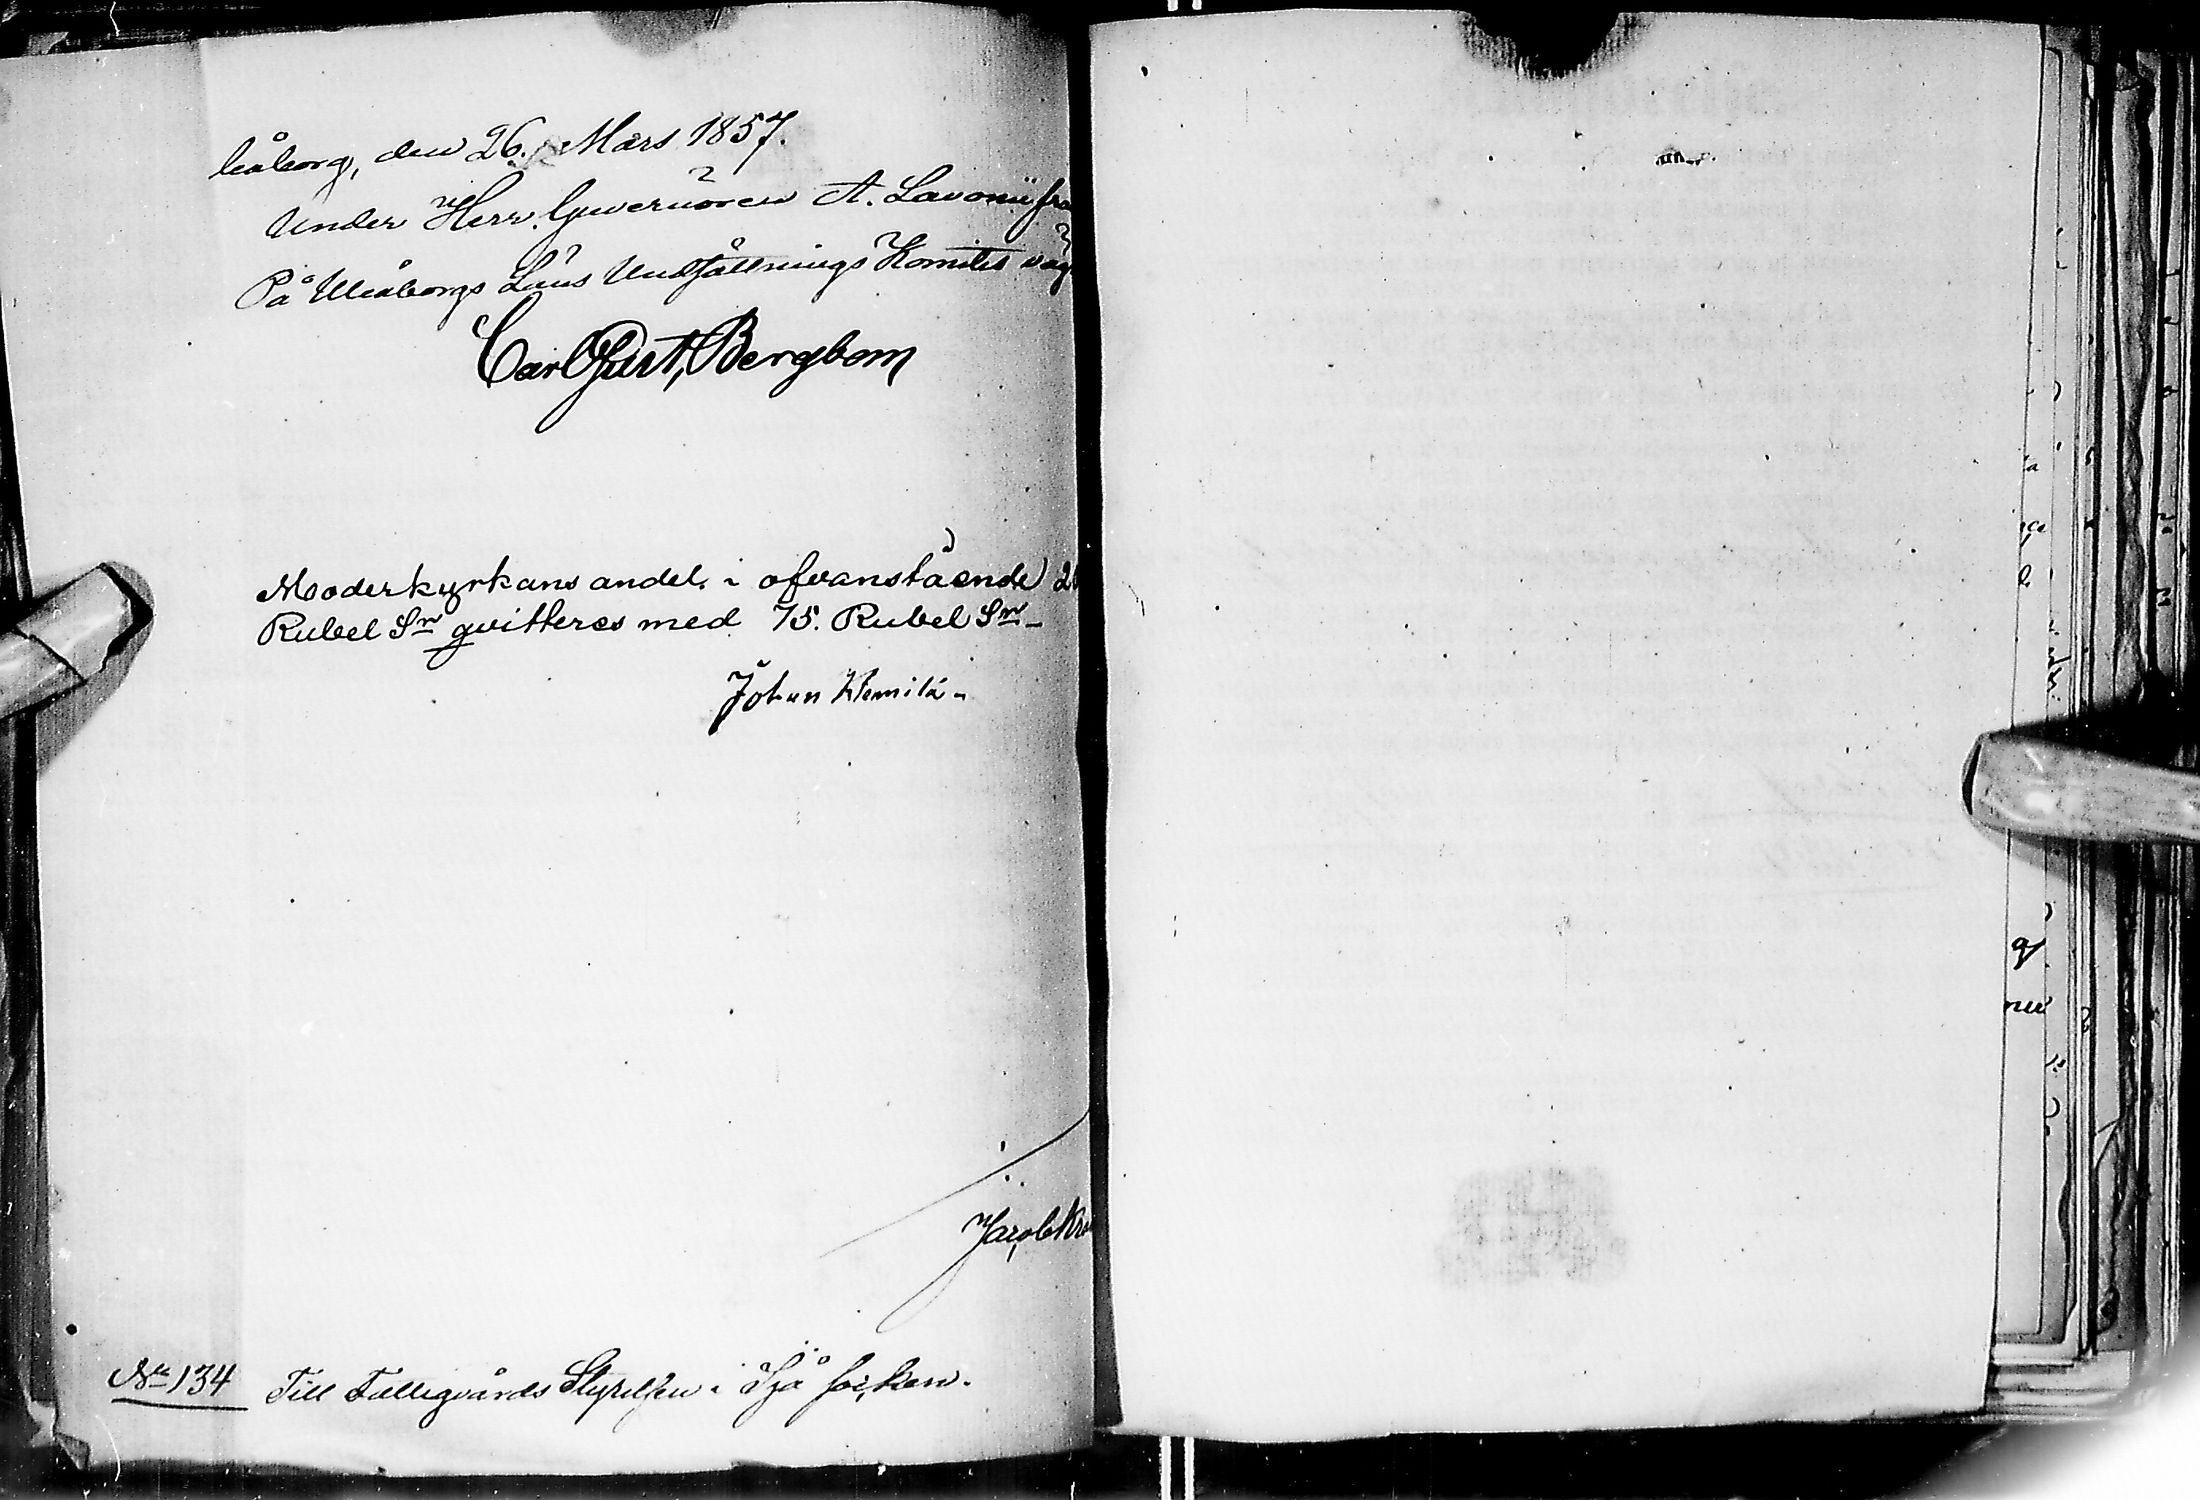 leåborg, den 26. Mars 1857.
Under Herr Guvernören A. Lavonii frå
På Uleåborgs Läns Undsättnings Komités väg
Carl Gust. Bergbom
Moderkyrkans andel i ofvanstående 2
Rubel Sr qvitteres med 75. Rubel Sr
Johan Wemilä
Jacob Kr
No 134 Till Fattigvårds Styrelsen i Ijå socken.